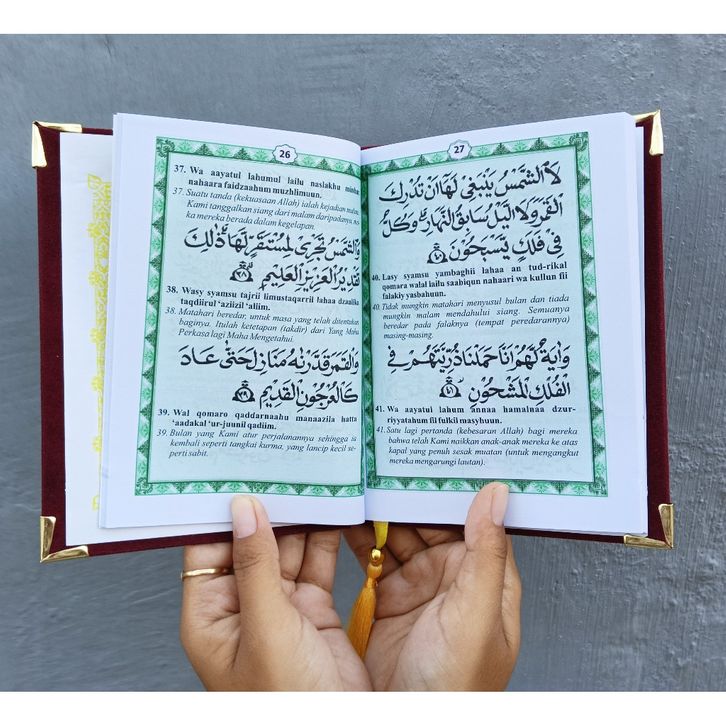 26
37. Wa aayatul lahumul lailu naslakhu minhu
nahaara faidzaahum muzhlimuun.
37. Suatu tanda (kekuasaan Allah) ialah kejadian malam,
Kami tanggalkan siang dari malam daripadanya,
ka mereka berada dalam kegelapan.
وَالشَّمْسُ تَجْرِيْ لِمُسْتَقَرٍّ لَهَا ذٰلِكَ
تَقْدِيْرُ الْعَزِيْزِ الْعَلِيْمِ ٣٨
38. Wasy syamsu tajrii limustaqarril lahaa dzaalika
taqdiirul 'aziizil 'aliim.
38. Matahari beredar, untuk masa yang telah ditentukan
baginya. Itulah ketetapan (takdir) dari Yang Maha
Perkasa lagi Maha Mengetahui.
وَالْقَمَرَ قَدَّرْنٰهُ مَنَازِلَ حَتّٰى عَادَ
كَالْعُرْجُوْنِ الْقَدِيْمِ ٣٩
39. Wal qomaro qaddarnaahu manaaziila hatta
'aadakal 'ur-juunil qadiim.
39. Bulan yang Kami atur perjalanannya sehingga ia
kembali seperti tangkai kurma, yang lancip kecil se-
perti sabit.
27
لَا الشَّمْسُ يَنْبَغِيْ لَهَا اَنْ تُدْرِكَ
الْقَمَرَ وَلَا الَّيْلُ سَابِقُ النَّهَارِ وَكُلٌّ
فِيْ فَلَكٍ يَسْبَحُوْنَ ٤٠
40. Lasy syamsu yambaghii lahaa an tud-rikal
qomara walal lailu saabiqun nahaari wa kullun fii
falakiy yasbahuun.
40. Tidak mungkin matahari menyusul bulan dan tiada
mungkin malam mendahului siang. Semuanya
beredar pada falaknya (tempat peredarannya)
masing-masing.
وَاٰيَةٌ لَهُمْ اَنَّا حَمَلْنَا ذُرِّيَّتَهُمْ فِى
الْفُلْكِ الْمَشْحُوْنِ ٤١
41. Wa aayatul lahum annaa hamalnaa dzur-
riyyatahum fil fulkil masyhuun.
41. Satu lagi pertanda (kebesaran Allah) bagi mereka
bahwa telah Kami naikkan anak-anak mereka ke atas
kapal yang penuh sesak muatan (untuk mengangkut
mereka mengarungi lautan).